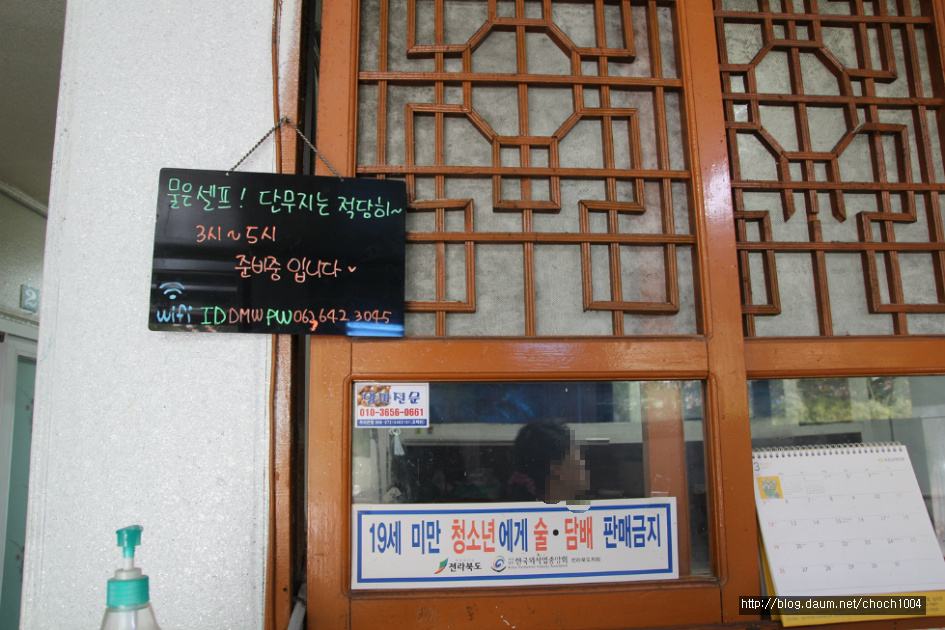 물은 셀프! 단무지는 적당히~
3시~5시
준비중 입니다
wifi ID DMW PW 063 642 3045
전문
010-3656-0661
19세 미만 청소년에게 술·담배 판매금지
전라북도 한국외식업중앙회 전라북도지회
2
3
http://blog.daum.net/choch1004